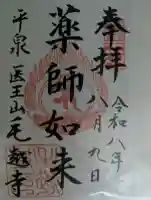 奉拝
令和八年
八月九日
薬師如来
平泉 医王山
毛越寺